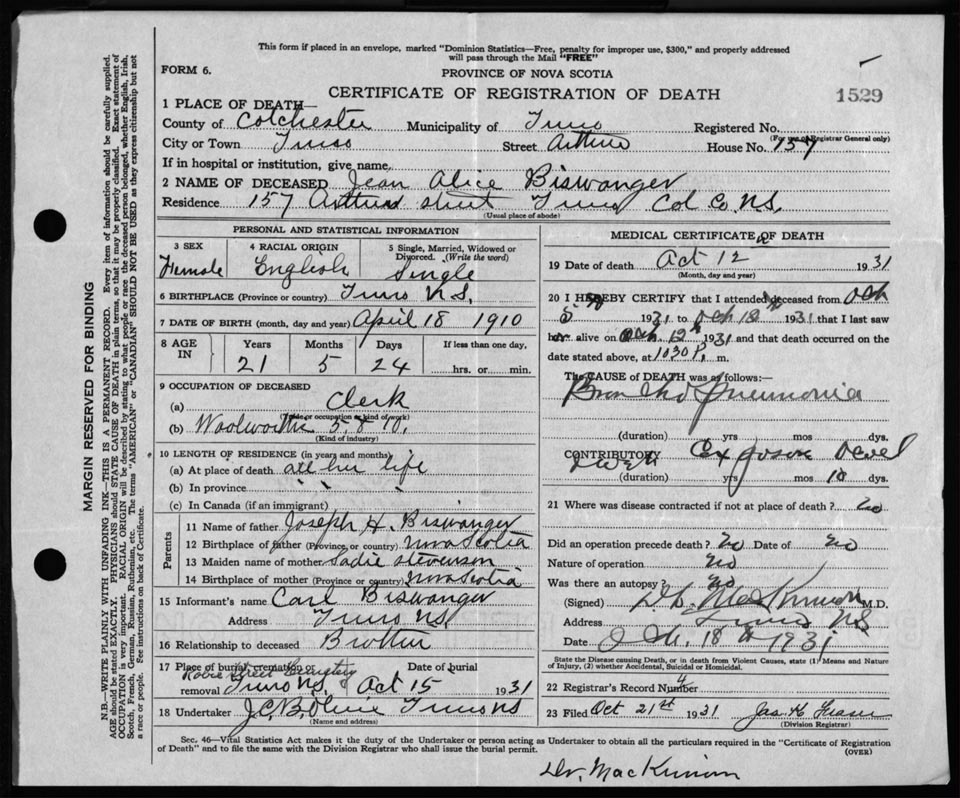 This form if placed in an envelope, marked "Dominion Statistics—Free, penalty for improper use, $300," and properly addressed
will pass through the Mail "FREE"
FORM 6.
PROVINCE OF NOVA SCOTIA
CERTIFICATE OF REGISTRATION OF DEATH
1529
1 PLACE OF DEATH—
County of Colchester Municipality of Truro Registered No.
(For use of Registrar General only)
City or Town Truro Street Arthur House No. 157
If in hospital or institution, give name
2 NAME OF DECEASED Jean Alice Biswanger
Residence 157 Arthur street Truro Col Co. N.S.
(Usual place of abode)
PERSONAL AND STATISTICAL INFORMATION
3 SEX 4 RACIAL ORIGIN 5 Single, Married, Widowed or Divorced. (Write the word)
Female English Single
6 BIRTHPLACE (Province or country) Truro N.S.
7 DATE OF BIRTH (month, day and year) April 18 1910
8 AGE IN Years Months Days If less than one day,
21 5 24 hrs. or min.
9 OCCUPATION OF DECEASED
(a) Clerk
(Trade or occupation or kind of work)
(b) Woolworths 5. & 10.
(Kind of industry)
10 LENGTH OF RESIDENCE (in years and months)
(a) At place of death all her life
(b) In province
(c) In Canada (if an immigrant)
Parents
11 Name of father Joseph H. Biswanger
12 Birthplace of father (Province or country) Nova Scotia
13 Maiden name of mother Sadie Stevenson
14 Birthplace of mother (Province or country) Nova Scotia
15 Informant's name Carl Biswanger
Address Truro N.S.
16 Relationship to deceased Brother
17 Place of burial, cremation or removal Date of burial
Robie Street Cemetery
Truro N.S. Oct 15 1931
18 Undertaker J.C.B. Olive Truro N.S
(Name and address)
MEDICAL CERTIFICATE OF DEATH
19 Date of death Oct 12 1931
(Month, day and year)
20 I HEREBY CERTIFY that I attended deceased from Oct
5 1931 to Oct 12 1931 that I last saw
her alive on Oct. 12th 1931 and that death occurred on the
date stated above, at 1030 P. m.
The CAUSE of DEATH was as follows:—
Broncho Pneumonia
(duration) yrs mos dys.
CONTRIBUTORY
(duration) yrs mos 10 dys.
21 Where was disease contracted if not at place of death? no
Did an operation precede death? no Date of no
Nature of operation no
Was there an autopsy? no
(Signed) MacKinnon M.D.
Address Truro N.S
Date Oct. 18th 1931
State the Disease causing Death, or in death from Violent Causes, state (1) Means and Nature of Injury, (2) whether Accidental, Suicidal or Homicidal.
22 Registrar's Record Number 4
23 Filed Oct 21st 1931 Jas. H. Fraser
(Division Registrar)
Sec. 46—Vital Statistics Act makes it the duty of the Undertaker or person acting as Undertaker to obtain all the particulars required in the "Certificate of Registration
of Death" and to file the same with the Division Registrar who shall issue the burial permit.
(OVER)
Dr. MacKinnon
MARGIN RESERVED FOR BINDING
N.B.—WRITE PLAINLY WITH UNFADING INK—THIS IS A PERMANENT RECORD. Every item of information should be carefully supplied.
AGE should be stated EXACTLY. PHYSICIANS should STATE CAUSE OF DEATH in plain terms, so that it may be properly classified. Exact statement of
OCCUPATION is very important. RACIAL ORIGIN will be described by stating to what people or race the deceased person belonged, whether English, Irish,
Scotch, French, German, Russian, Ruthenian, etc. The terms "AMERICAN" or "CANADIAN" SHOULD NOT BE USED as they express citizenship but not
a race or people. See instructions on back of Certificate.